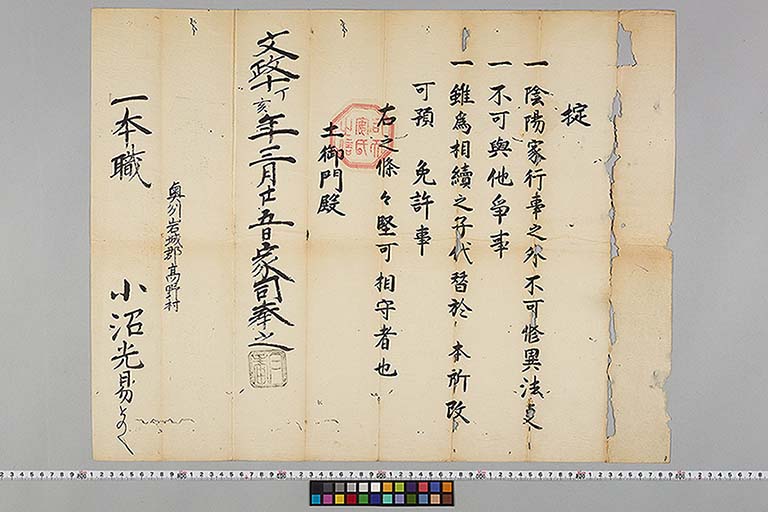 掟
一陰陽家行事之外不可修異法事
一不可與他爭事
一雖為相續之子代替於 本所改
可預 免許事
右之條々堅可相守者也
土御門殿
文政十丁亥年三月廿五日家司奉之
奥州岩城郡高野村
一本職 小沼光易